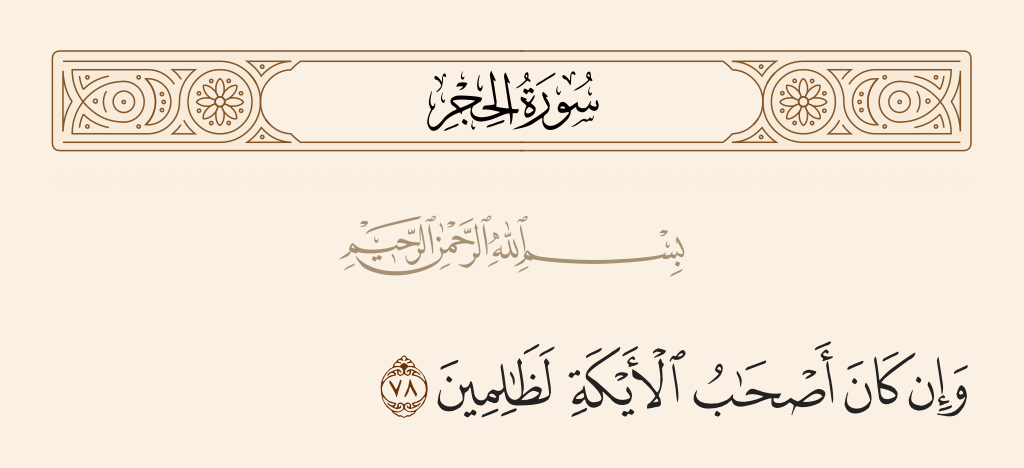 سُورَةُ الحِجْرِ
بِسْمِ ٱللَّهِ ٱلرَّحْمَٰنِ ٱلرَّحِيمِ
وَإِن كَانَ أَصْحَٰبُ ٱلْأَيْكَةِ لَظَٰلِمِينَ ٧٨